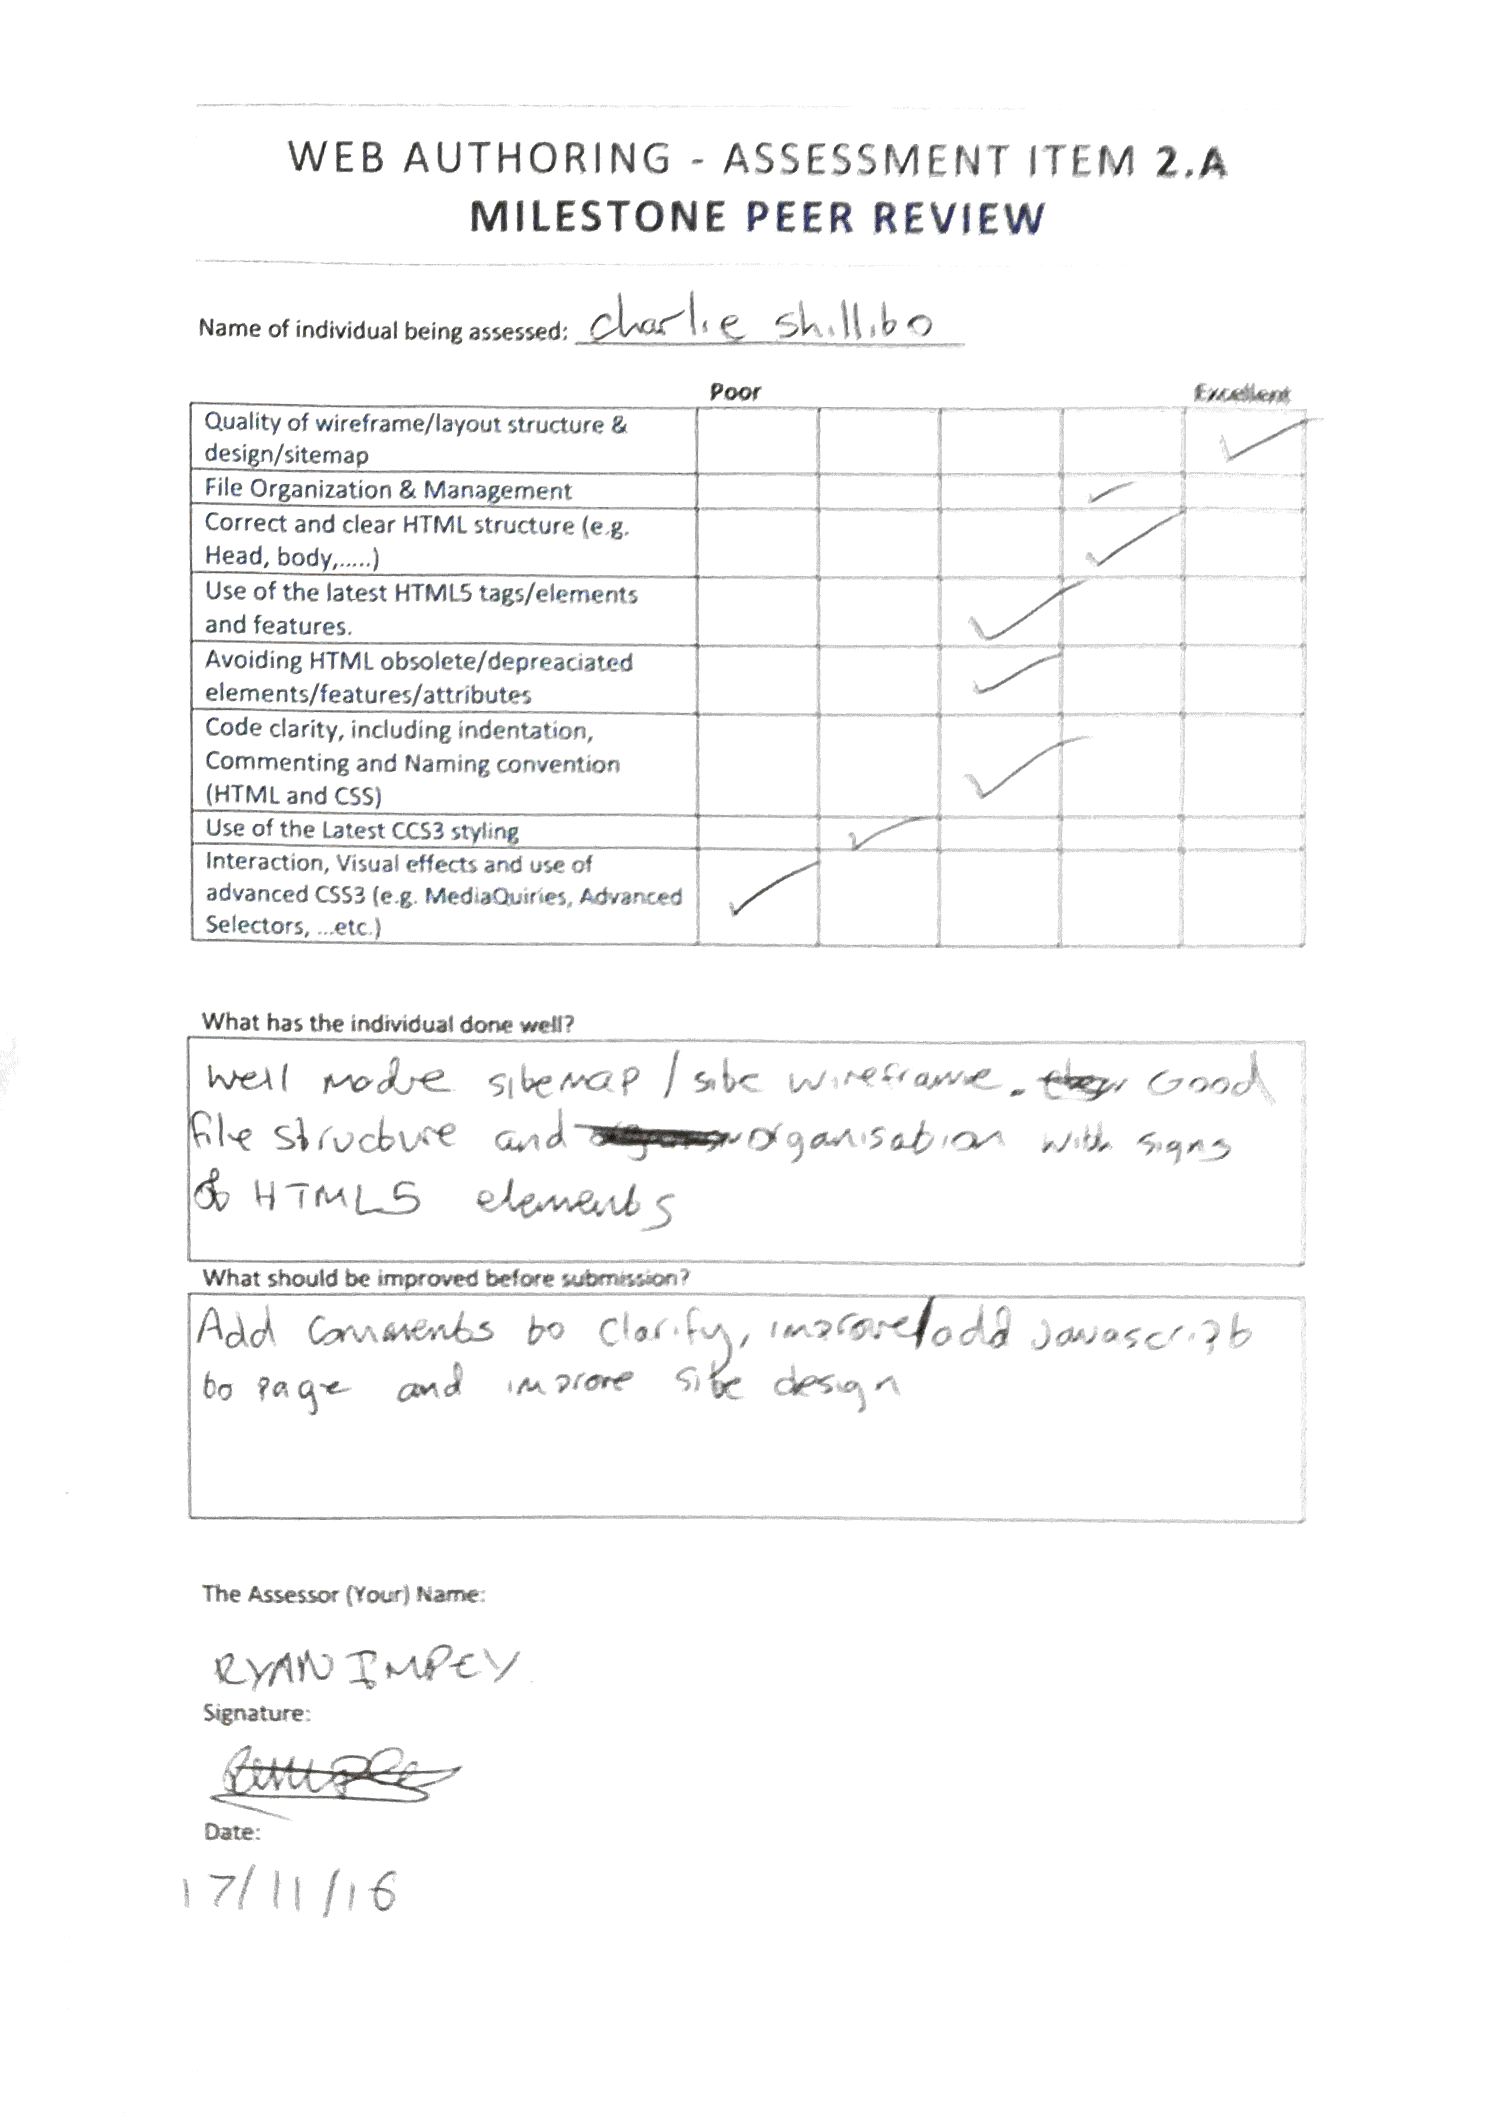 WEB AUTHORING - ASSESSMENT ITEM 2.A
MILESTONE PEER REVIEW
Name of individual being assessed: charlie shillibo
Poor Excellent
Quality of wireframe/layout structure &
design/sitemap
File Organization & Management
Correct and clear HTML structure (e.g.
Head, body,.....)
Use of the latest HTML5 tags/elements
and features.
Avoiding HTML obsolete/depreaciated
elements/features/attributes
Code clarity, including indentation,
Commenting and Naming convention
(HTML and CSS)
Use of the Latest CCS3 styling
Interaction, Visual effects and use of
advanced CSS3 (e.g. MediaQuiries, Advanced
Selectors, ...etc.)
What has the individual done well?
Well made sitemap / site wireframe. Good
file structure and organisation with signs
of HTML5 elements
What should be improved before submission?
Add comments to clarify, improve/add Javascript
to page and improve site design
The Assessor (Your) Name:
RYAN IMPEY
Signature:
Date:
17/11/16